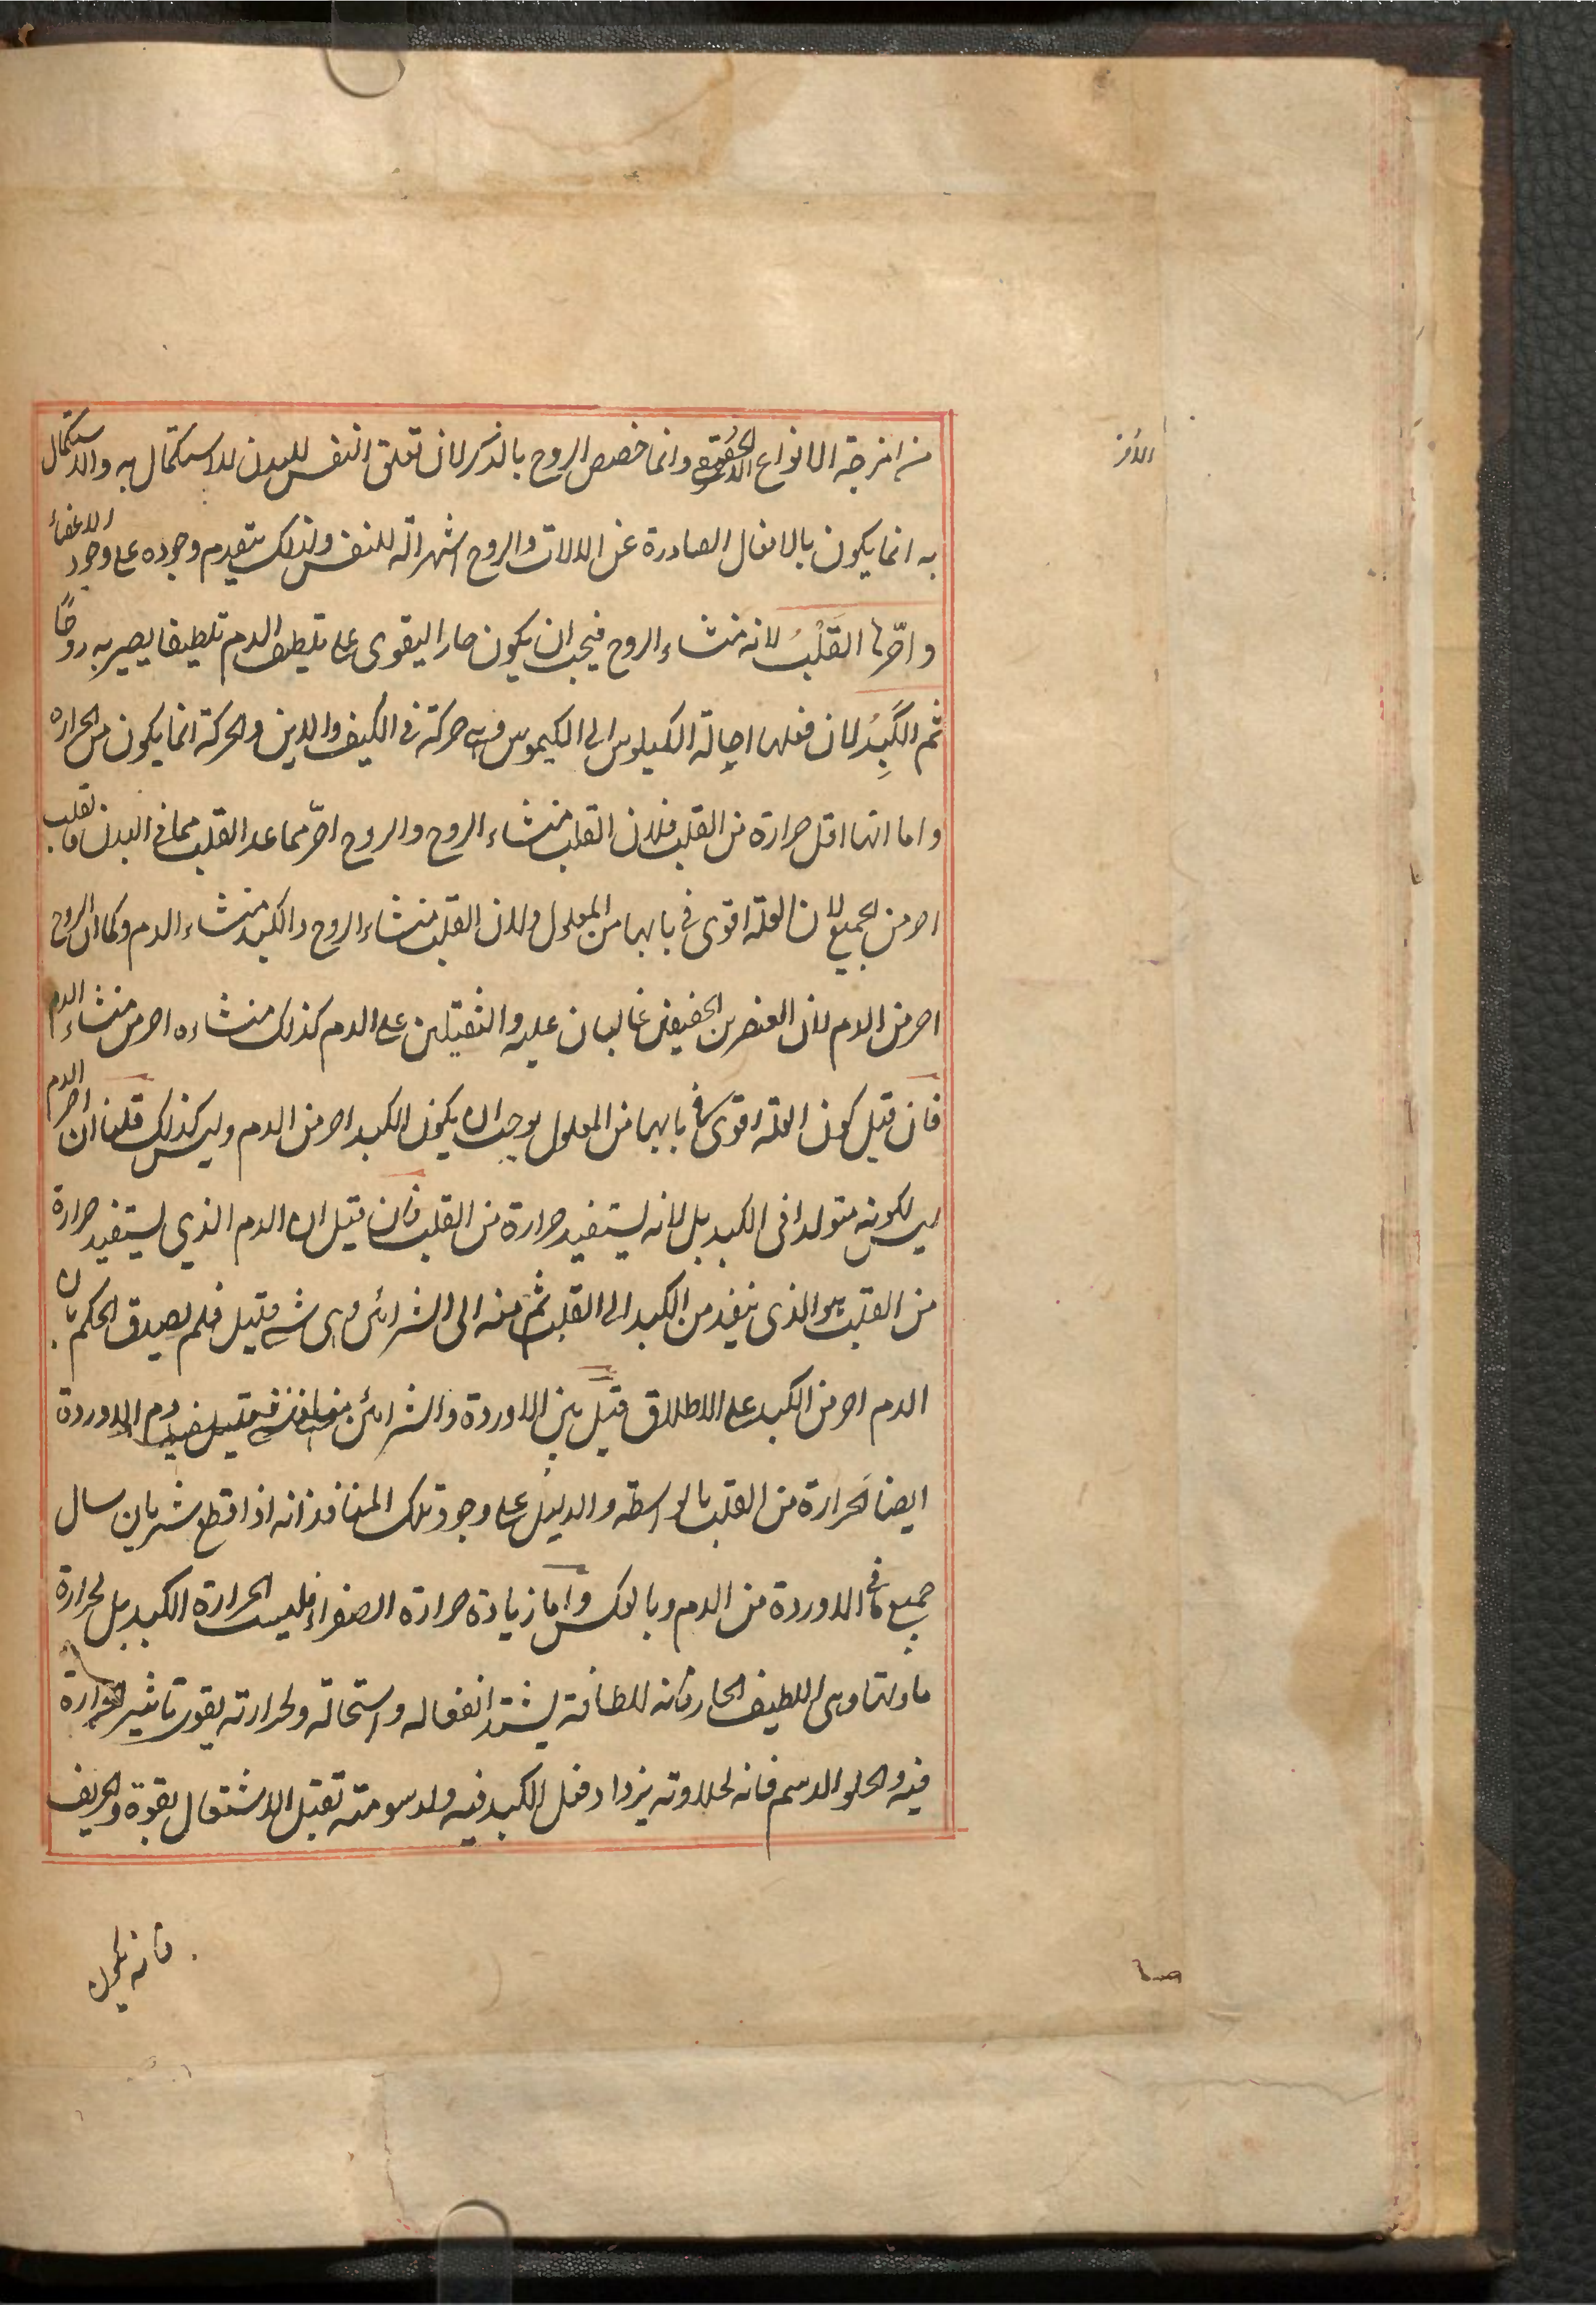 من امزجة الانواع الحقيقي وانما خصص الروح بالذكر لان تعلق النفس للبدن للاستكمال به والاستكمال
به انما يكون بالافعال الصادرة عن الالات والروح اشهر الة للنفس ولذلك يتقدم وجوده على وجود الاعضاء
واحرها القَلْبُ لانه منشاء الروح فيجب ان يكون حارا ليقوى على تلطيف الدم تلطيفا يصير به روحًا
ثم الكَبِدُ لان فعلها احالة الكيلوس الى الكيموس وهى حركة فى الكيف والاين والحركة انما يكون من الحراره
واما انها اقل حرارة من القلب فلان القلب منشاء الروح والروح احرّ مما عدا القلب مما فى البدن فالقلب
احر من الجميع لان العلة اقوى فى بابها من المعلول ولان القلب منشاء الروح والكبد منشاء الدم وكما ان الروح
احر من الدم لان العنصرين الخفيفين غالبان عليه والثقيلين على الدم كذلك منشاءه احر من منشاء الدم
فان قيل كون العلة اقوى فى بابها من المعلول يوجب ان يكون الكبد احر من الدم وليس كذلك قلنا ان احر الدم
ليس لكونه متولدا فى الكبد بل لانه يستفيد حرارة من القلب فان قيل ان الدم الذي يستفيد حرارة
من القلب هو الذى ينفذ من الكبد الى القلب ثم منه الى الشرائين وهى شے قليل فلم يصدق الحكم بان
الدم احر من الكبد على الاطلاق قيل بين الاوردة والشرائين منافذ فيستفيد دم الاوردة
ايضا الحرارة من القلب بالواسطه والدليل على وجود تلك المنافذ انه اذا قطع شريان سال
جميع ما فى الاوردة من الدم وبالعكس واما زيادة حرارة الصفراء فليست لحرارة الكبد بل لحرارة
مادتها وهى اللطيف الحار فانه للطافته يشتد انفعاله واستحالته ولحرارته يقوى تاثير الحرارة
فيه والحلو الدسم فانه لحلاوته يزداد فعل الكبد فيه ولدسومته تقبل الاشتعال بقوة والحريف
فانه